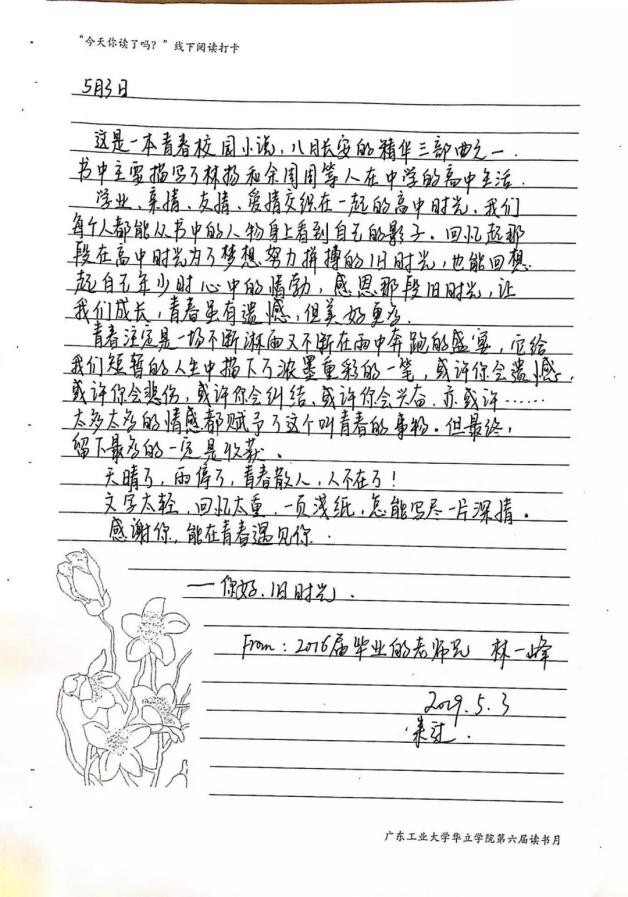 “今天你读了吗？”线下阅读打卡
5月3日
这是一本青春校园小说，八月长安的精华三部曲之一.
书中主要描写了林杨和余周周等人在中学的高中生活.
学业、亲情、友情、爱情交织在一起的高中时光，我们
每个人都能从书中的人物身上看到自己的影子。回忆起那
段在高中时光为了梦想努力拼搏的旧时光，也能回想
起自己年少时心中的情勃，感恩那段旧时光，让
我们成长，青春虽有遗憾，但美好更多.
青春注定是一场不断淋雨又不断在雨中奔跑的盛宴，它给
我们短暂的人生中描下了浓墨重彩的一笔，或许你会遗憾，
或许你会悲伤，或许你会纠结、或许你会兴奋、亦或许……
太多太多的情感都赋予了这个叫青春的事物。但最终，
留下最多的一定是收获、
天晴了，雨停了，青春散人，人不在了！
文字太轻，回忆太重，一页浅纸，怎能写尽一片深情。
感谢你，能在青春遇见你.
——你好、旧时光.
From：2016届毕业的老师兄 林一峰
2019.5.3
广东工业大学华立学院第六届读书月